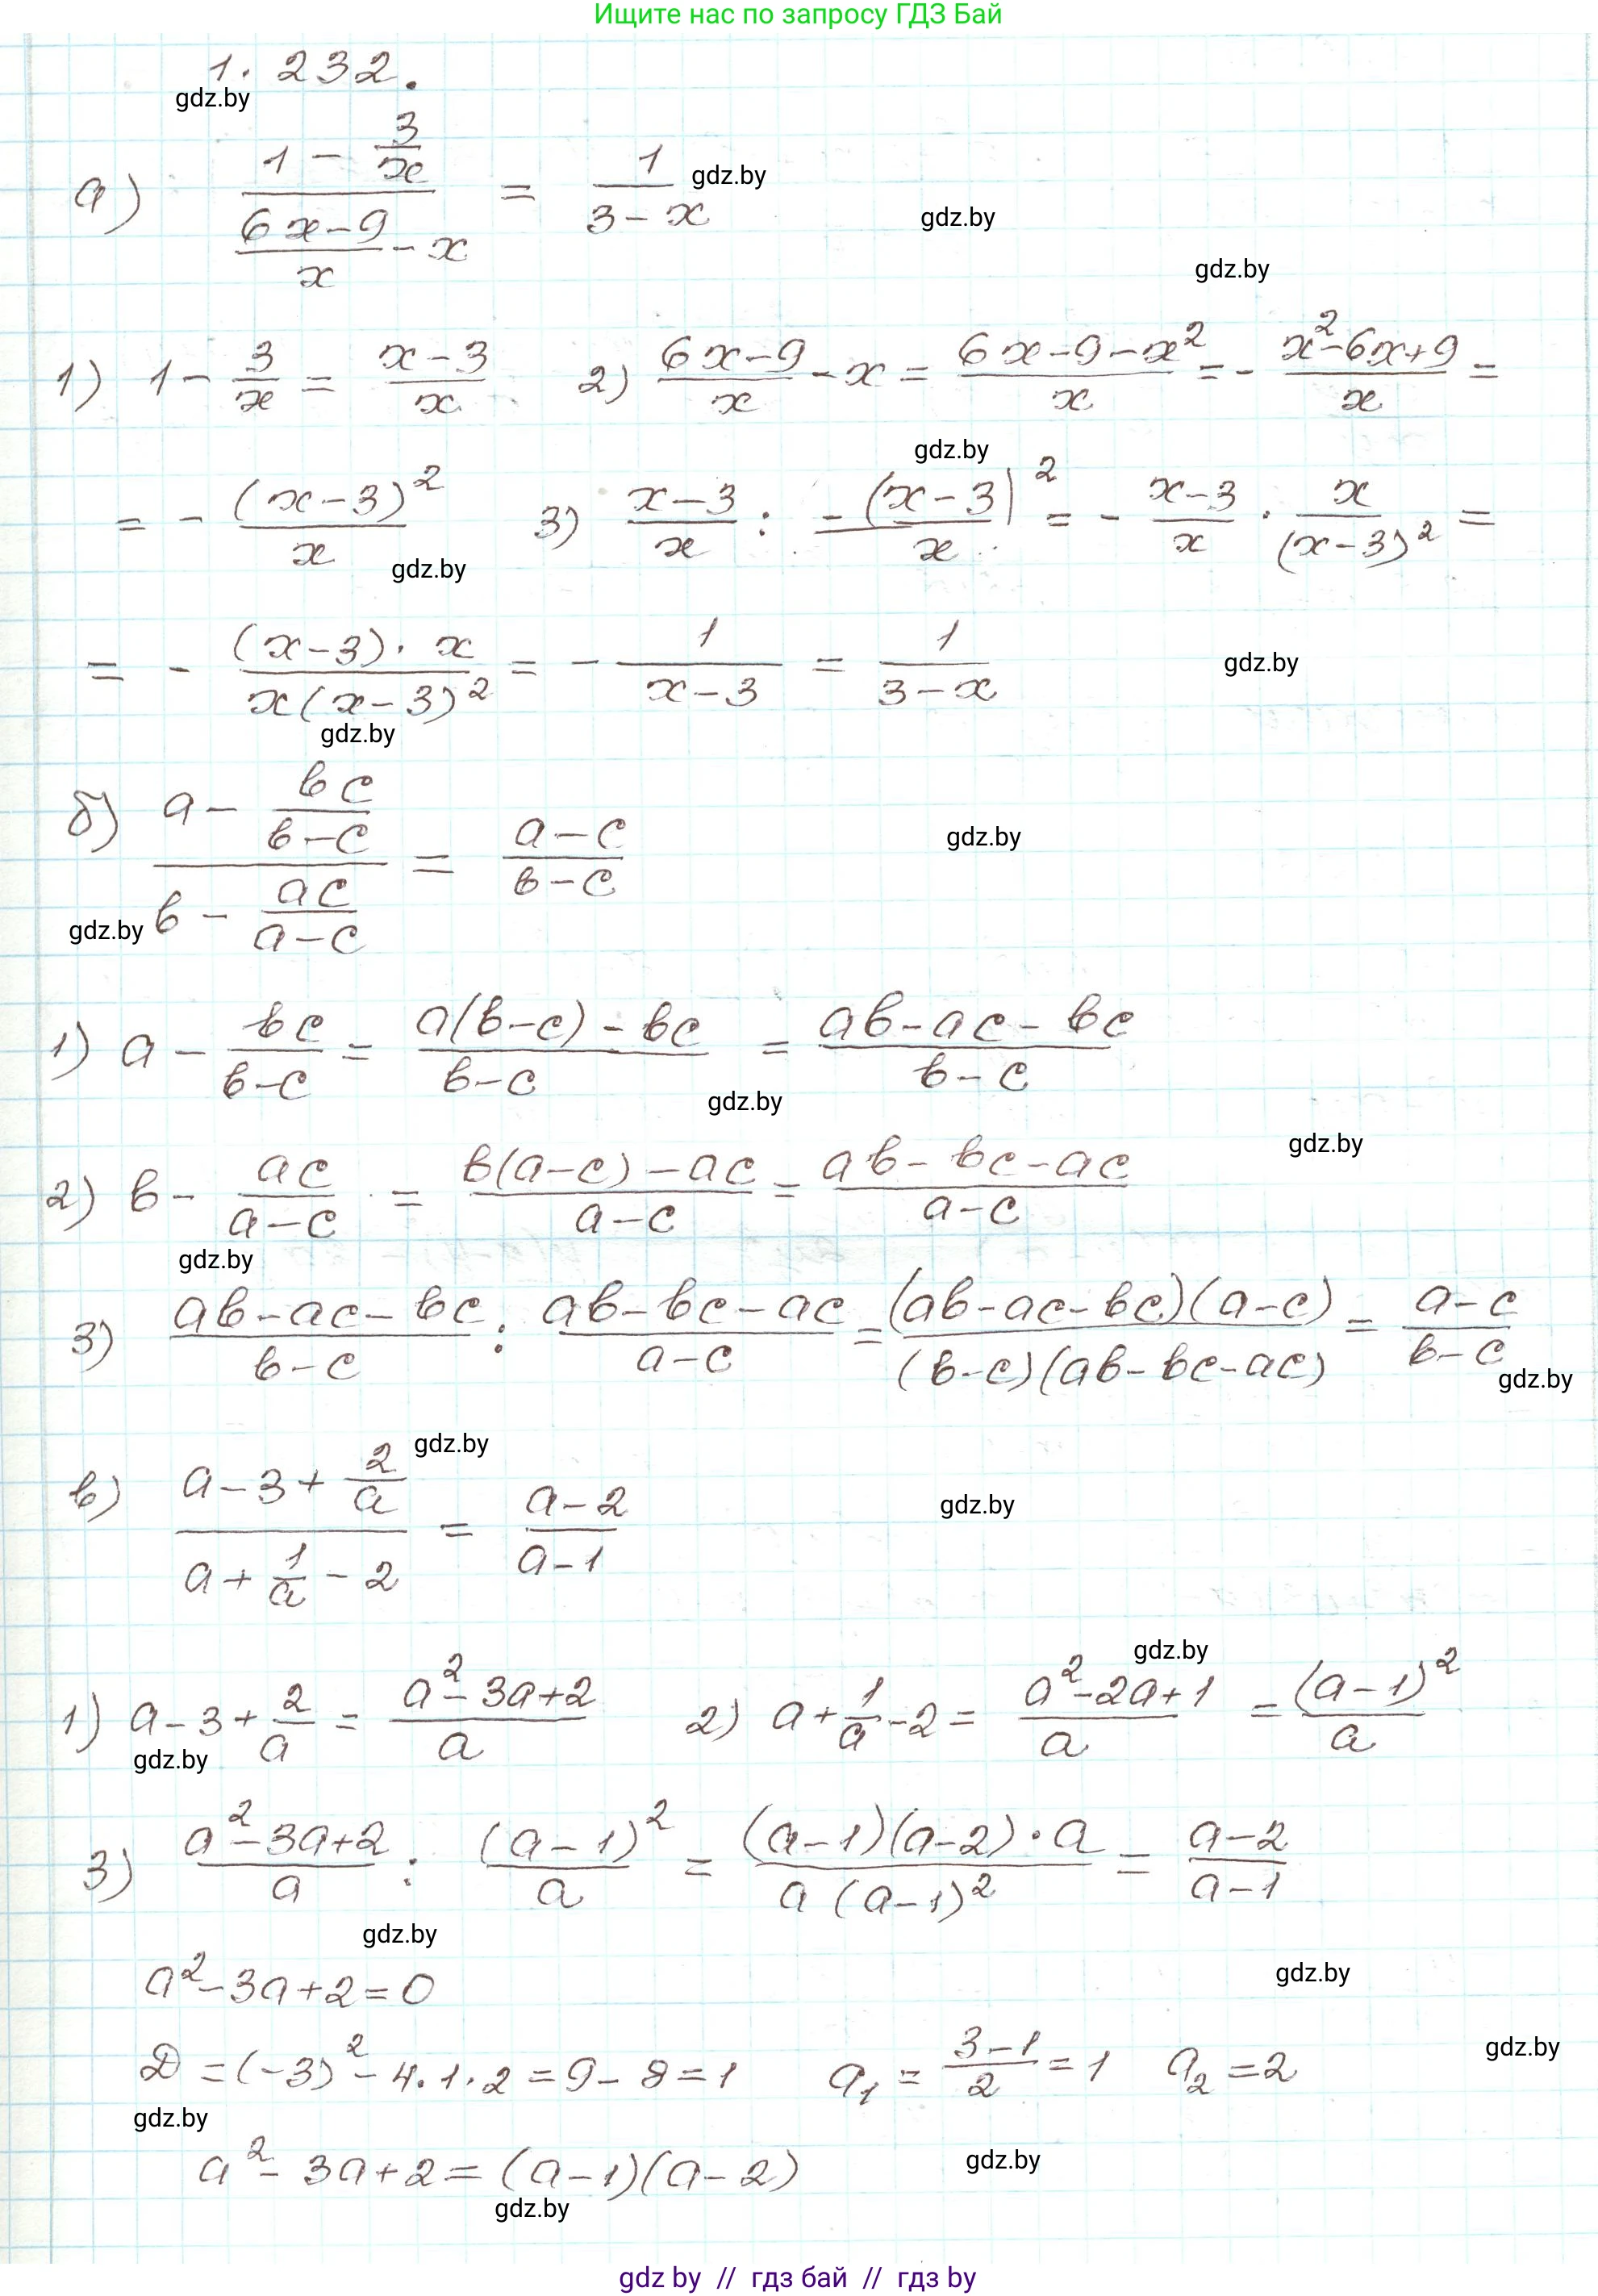 Ищите нас по запросу ГДЗ Бай
1. 232.
gdz.by
а) (1 - 3/x) / ((6x-9)/x - x) = 1/(3-x)
gdz.by
gdz.by
gdz.by
1) 1 - 3/x = (x-3)/x 2) (6x-9)/x - x = (6x-9-x²)/x = - (x²-6x+9)/x =
gdz.by
= - (x-3)²/x 3) (x-3)/x : - (x-3)²/x = - (x-3)/x · x/(x-3)² =
gdz.by
= - ((x-3)·x)/(x(x-3)²) = - 1/(x-3) = 1/(3-x)
gdz.by
gdz.by
б) (a - bc/(b-c)) / (b - ac/(a-c)) = (a-c)/(b-c)
gdz.by
gdz.by
1) a - bc/(b-c) = (a(b-c)-bc)/(b-c) = (ab-ac-bc)/(b-c)
gdz.by
gdz.by
2) b - ac/(a-c) = (b(a-c)-ac)/(a-c) = (ab-bc-ac)/(a-c)
gdz.by
3) (ab-ac-bc)/(b-c) : (ab-bc-ac)/(a-c) = ((ab-ac-bc)(a-c))/((b-c)(ab-bc-ac)) = (a-c)/(b-c)
gdz.by
gdz.by
в) (a-3+2/a) / (a+1/a-2) = (a-2)/(a-1)
gdz.by
gdz.by
1) a-3+2/a = (a²-3a+2)/a 2) a+1/a-2 = (a²-2a+1)/a = (a-1)²/a
gdz.by
3) (a²-3a+2)/a : (a-1)²/a = ((a-1)(a-2)·a)/(a(a-1)²) = (a-2)/(a-1)
gdz.by
gdz.by
a²-3a+2=0
gdz.by
D=(-3)²-4·1·2=9-8=1 a₁=(3-1)/2=1 a₂=2
gdz.by
gdz.by
a²-3a+2=(a-1)(a-2)
gdz.by
gdz by // гдз бай // гдз by